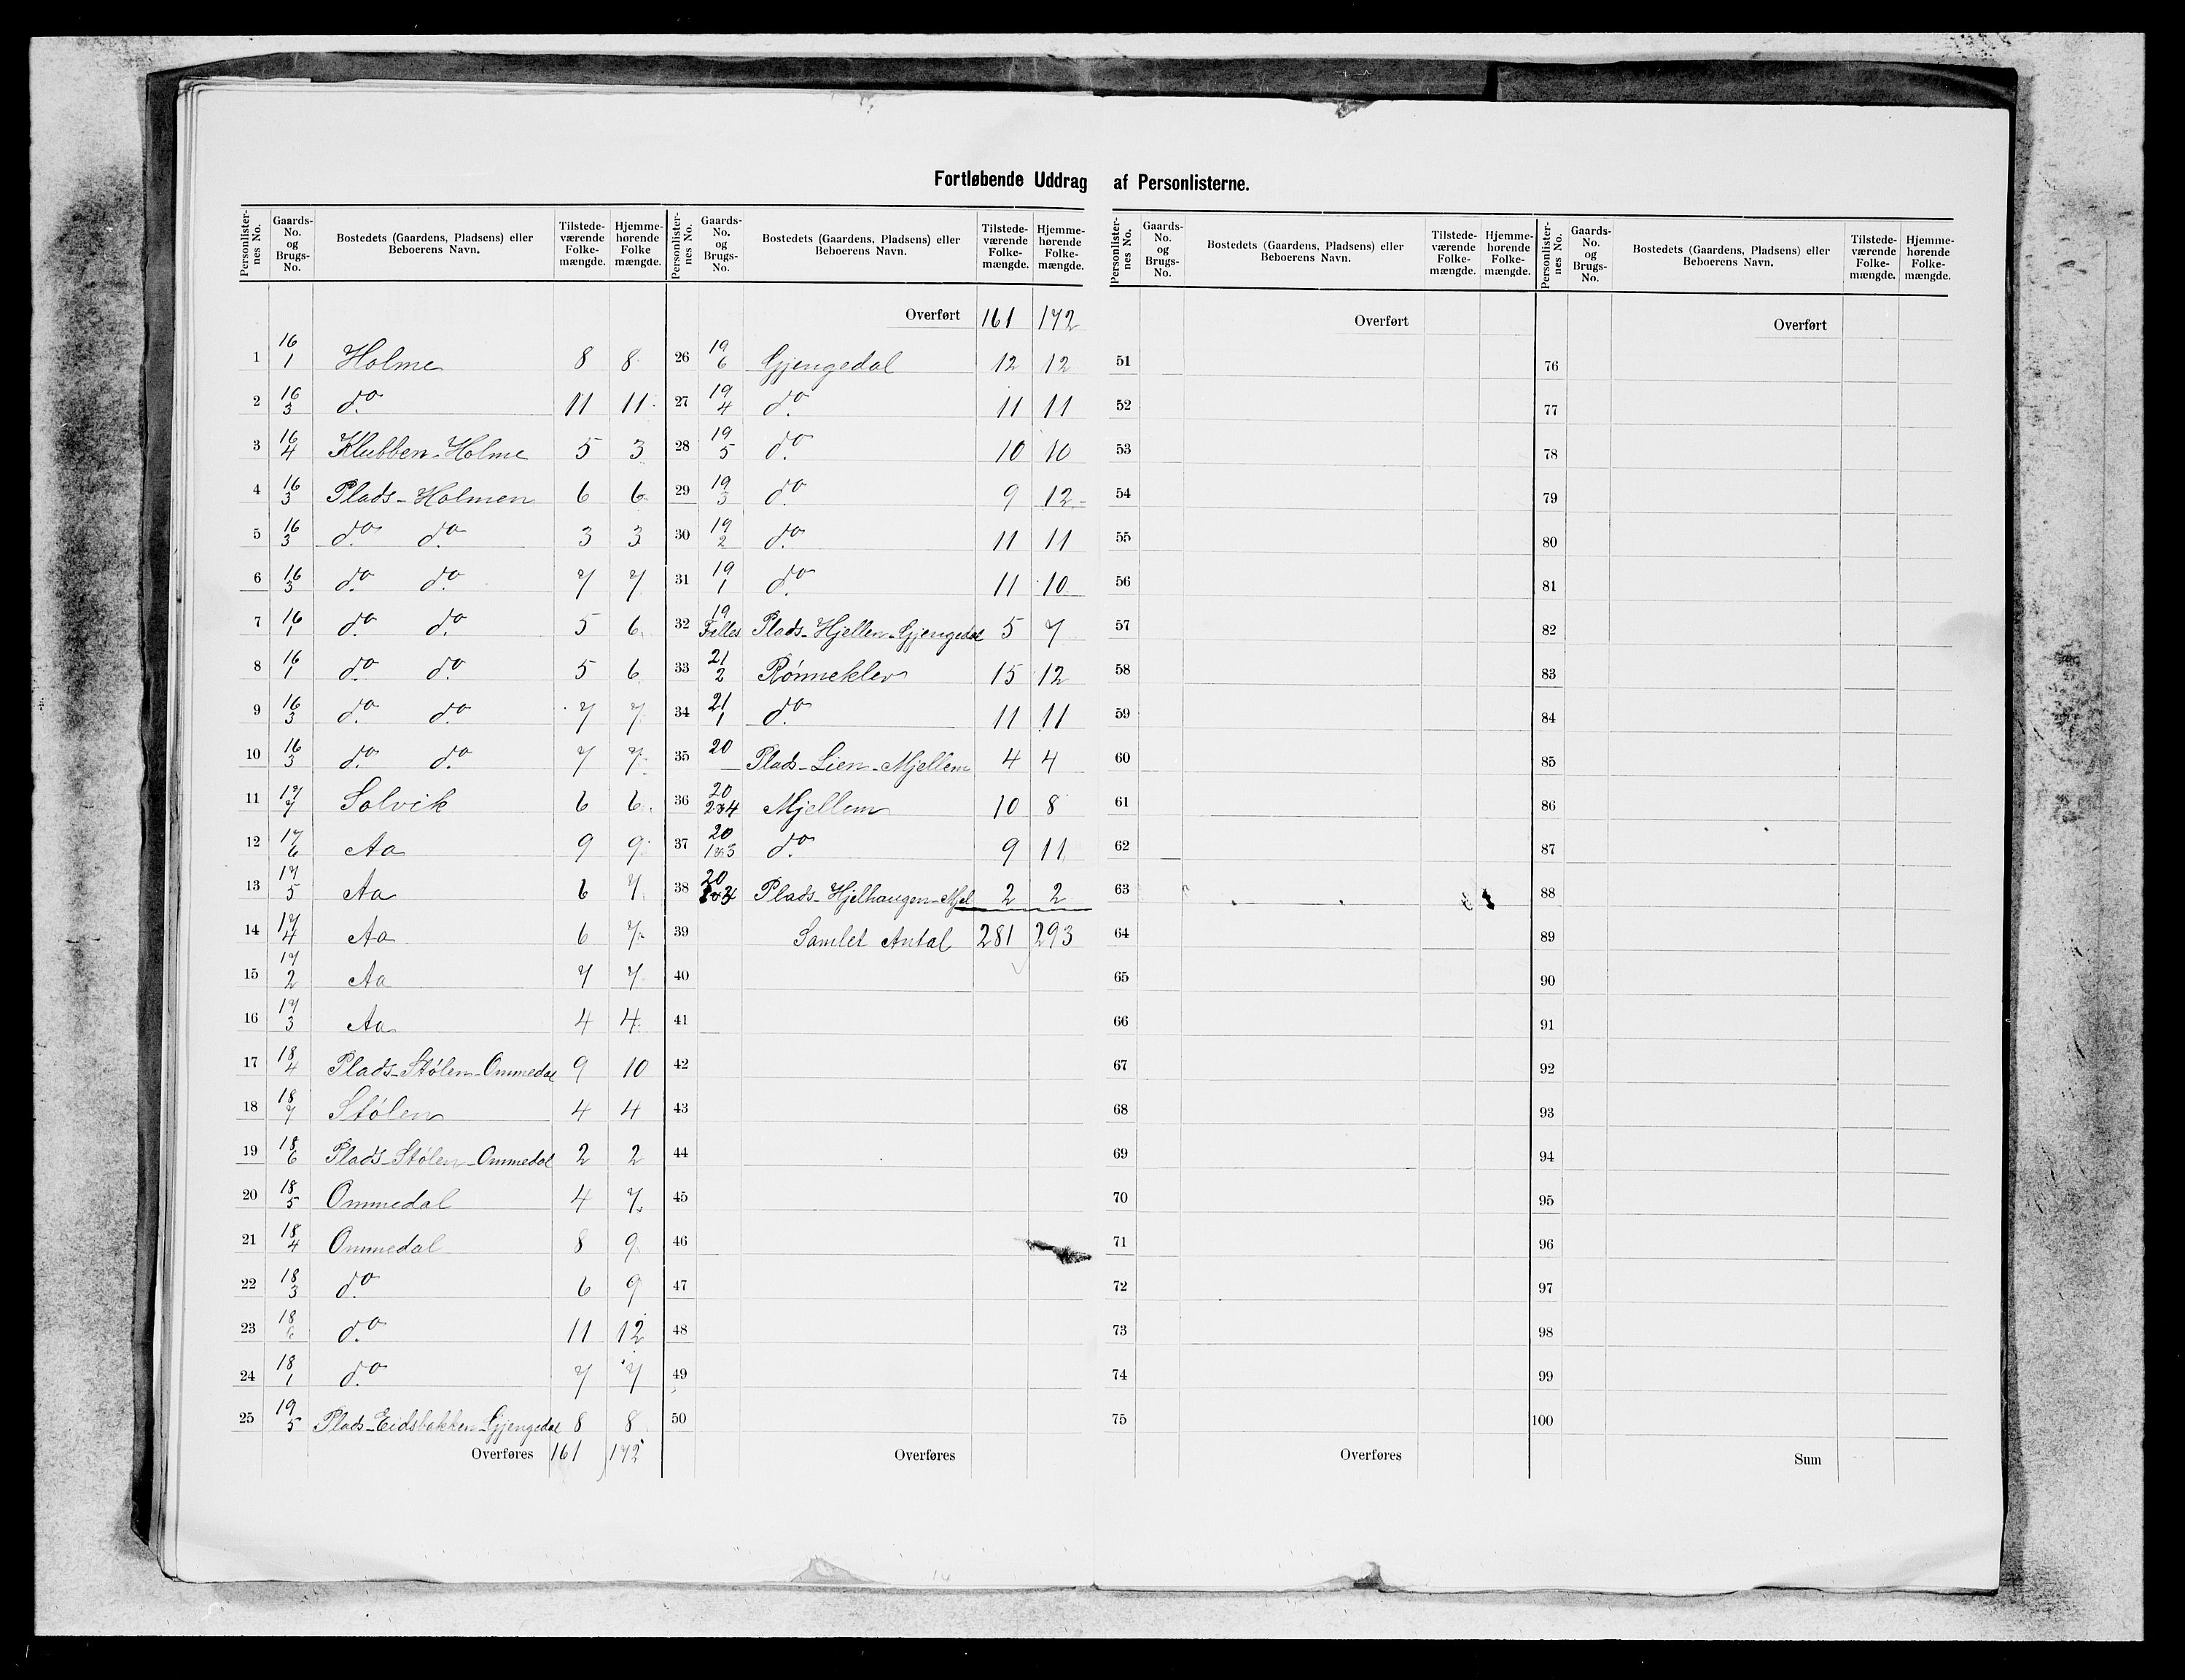 Fortløbende Uddrag af Personlisterne.
Personlister-nes No. | Gaards-No. og Brugs-No. | Bostedets (Gaardens, Pladsens) eller Beboerens Navn. | Tilstede-værende Folke-mængde. | Hjemme-hørende Folke mængde.
1 16/1 Holme 8 8
2 16/3 do 11 11
3 16/4 Klubben-Holme 5 3
4 16/3 Plads-Holmen 6 6
5 16/3 do do 3 3
6 16/3 do do 7 7
7 16/1 do do 5 6
8 16/1 do do 5 6
9 16/3 do do 7 7
10 16/3 do do 7 7
11 17/7 Solvik 6 6
12 17/6 Aa 9 9
13 17/5 Aa 6 7
14 17/4 Aa 6 7
15 17/2 Aa 7 7
16 17/3 Aa 4 4
17 18/4 Plads-Stølen-Ommedal 9 10
18 18/7 Stølen 4 4
19 18/6 Plads-Stølen-Ommedal 2 2
20 18/5 Ommedal 4 7
21 18/4 Ommedal 8 9
22 18/3 do 6 9
23 18/6 do 11 12
24 18/1 do 7 7
25 19/5 Plads-Eidsbakken-Gjengedal 8 8
Overføres 161 172
Personlister-nes No. | Gaards-No. og Brugs-No. | Bostedets (Gaardens, Pladsens) eller Beboerens Navn. | Tilstede-værende Folke-mængde. | Hjemme-hørende Folke-mængde.
Overført 161 172
26 19/6 Gjengedal 12 12
27 19/4 do 11 11
28 19/5 do 10 10
29 19/3 do 9 12
30 19/2 do 11 11
31 19/1 do 11 10
32 19/Felles Plads-Hjellen-Gjengedal 5 7
33 21/2 Rønneklev 15 12
34 21/1 do 11 11
35 20 Plads-Lien-Mjellem 4 4
36 20/2&4 Mjellem 10 8
37 20/1&3 do 9 11
38 20 Plads-Hjelhaugen-Mjel 2 2
39 Samlet Antal 281 293
40
41
42
43
44
45
46
47
48
49
50
Overføres
Personlister-nes No. | Gaards-No. og Brugs-No. | Bostedets (Gaardens, Pladsens) eller Beboerens Navn. | Tilstede-værende Folke-mængde. | Hjemme-hørende Folke-mængde.
Overført
51
52
53
54
55
56
57
58
59
60
61
62
63
64
65
66
67
68
69
70
71
72
73
74
75
Overføres
Personlister-nes No. | Gaards-No. og Brugs-No. | Bostedets (Gaardens, Pladsens) eller Beboerens Navn. | Tilstede-værende Folke-mængde. | Hjemme-hørende Folke-mængde.
Overført
76
77
78
79
80
81
82
83
84
85
86
87
88
89
90
91
92
93
94
95
96
97
98
99
100
Sum